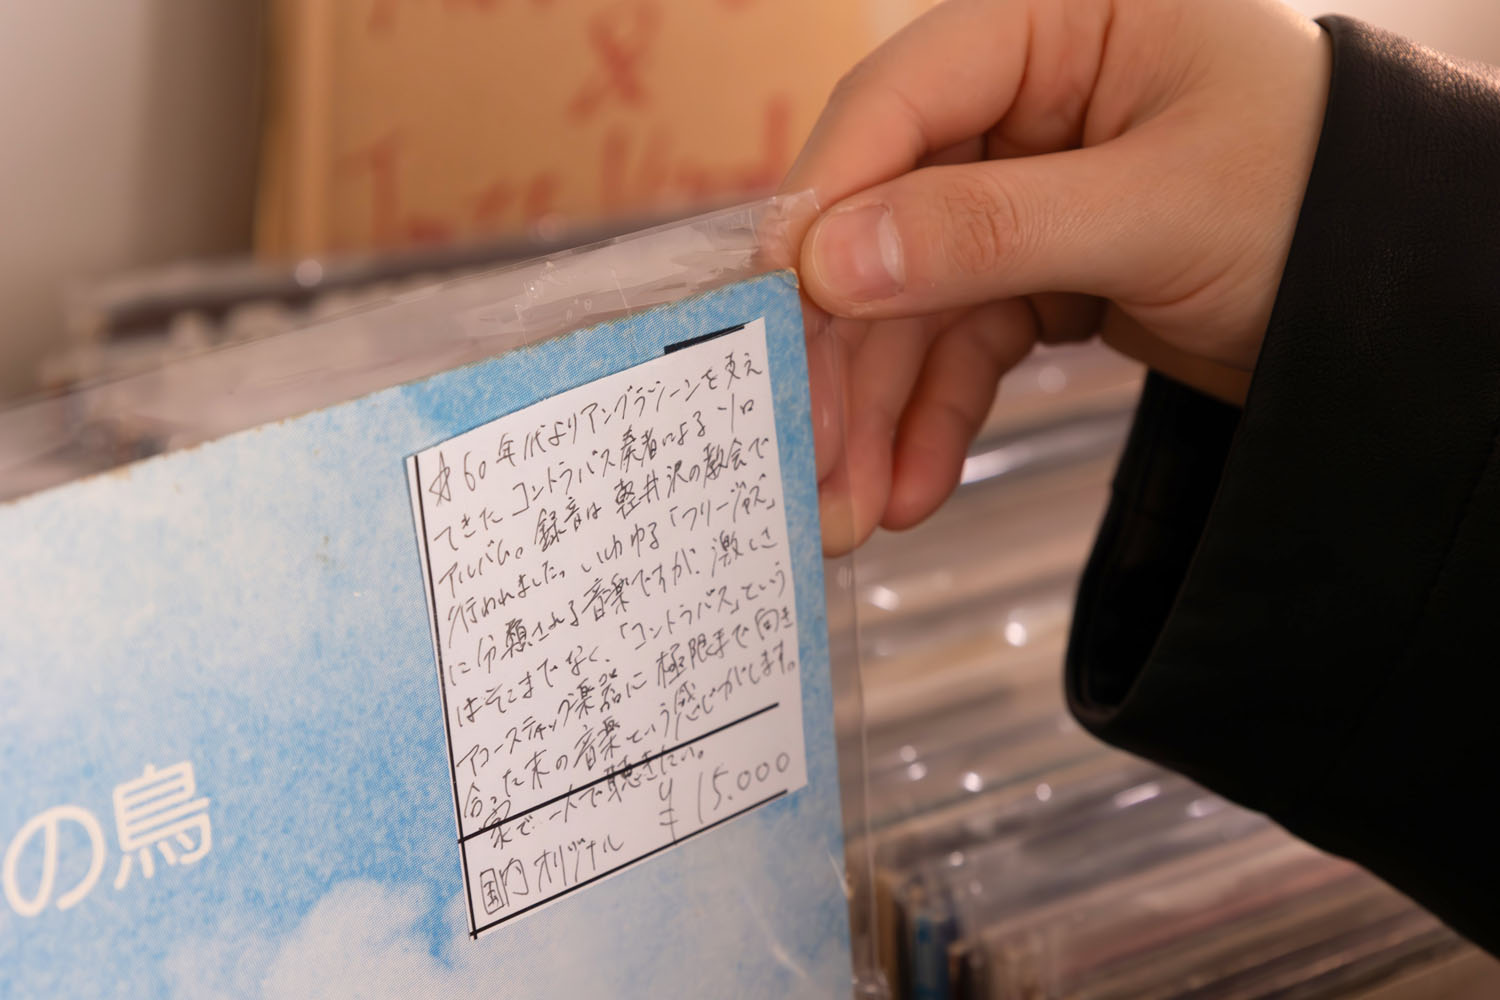 60年代よりアングラシーンを支え
てきたコントラバス奏者によるソロ
アルバム。録音は軽井沢の教会で
行われました。いわゆる「フリージャズ」
に分類される音楽ですが、激しさ
はそこまでなく、「コントラバス」という
アコースティック楽器に極限まで向き
合った末の音楽という感じがします。
家で一人で聴きたい。
国内オリジナル ¥15.000
の鳥
&